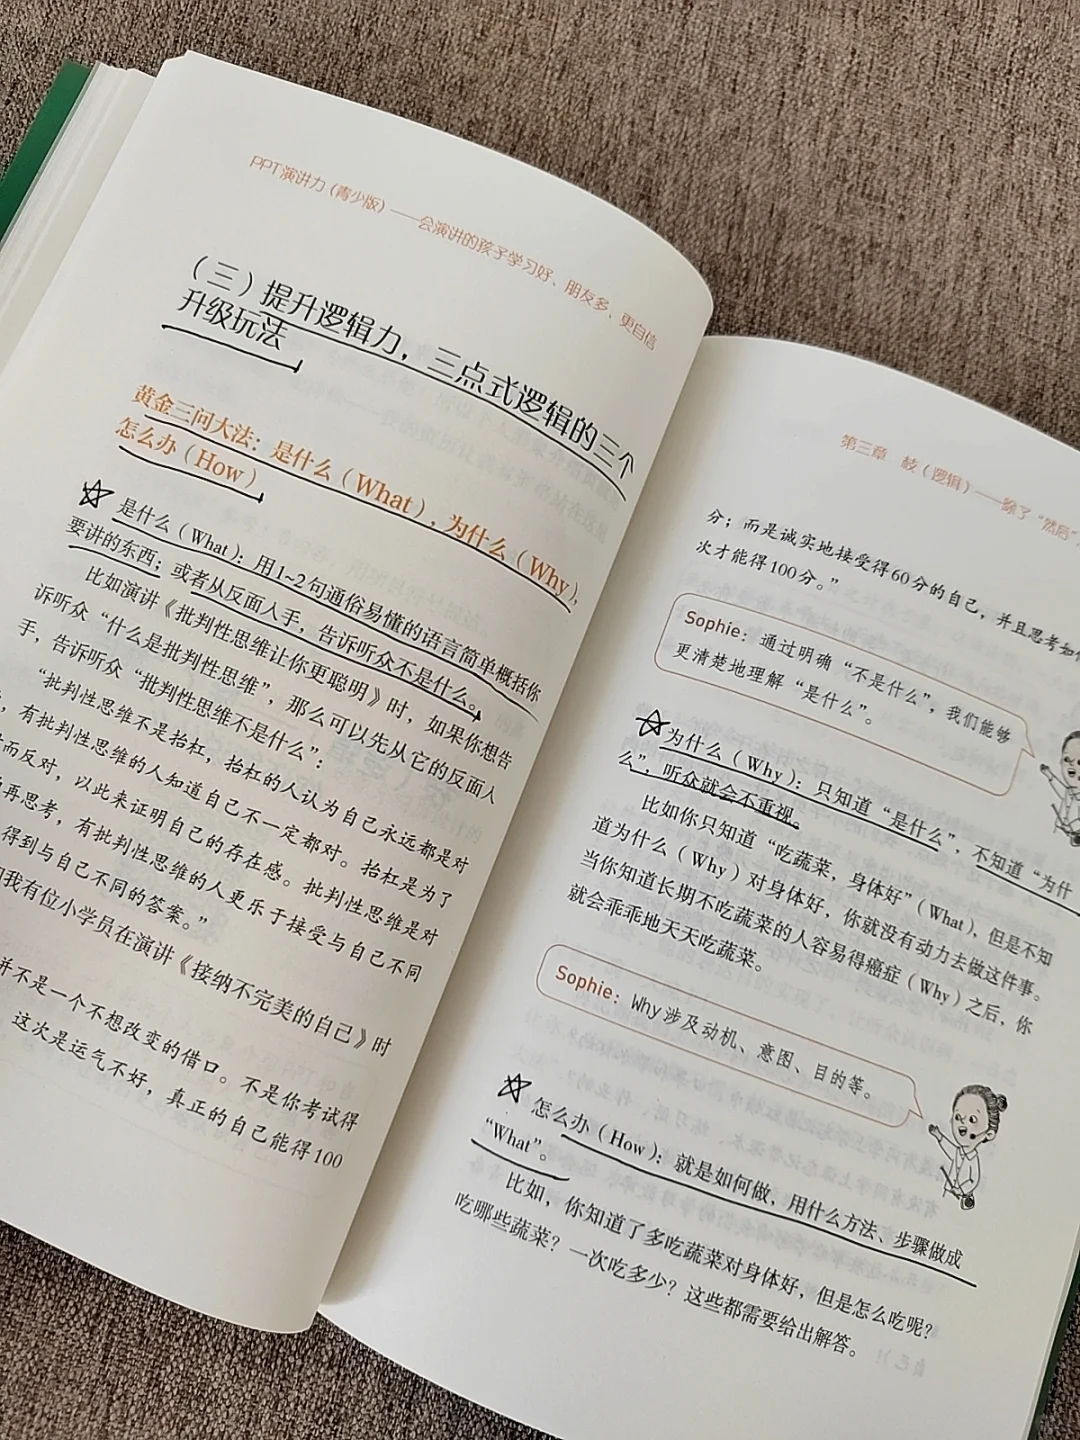 PPT演讲力（青少版）——会演讲的孩子学习好、朋友多、更自信
（三）提升逻辑力，三点式逻辑的三个
升级玩法
黄金三问大法：是什么（What），为什么（Why），
怎么办（How）
是什么（What）：用1~2句通俗易懂的语言简单概括你
要讲的东西；或者从反面入手，告诉听众不是什么。
比如演讲《批判性思维让你更聪明》时，如果你想告
诉听众“什么是批判性思维”，那么可以先从它的反面入
手，告诉听众“批判性思维不是什么”：
“批判性思维不是抬杠，抬杠的人认为自己永远都是对
，有批判性思维的人知道自己不一定都对。抬杠是为了
而反对，以此来证明自己的存在感。批判性思维是对
再思考，有批判性思维的人更乐于接受与自己不同
得到与自己不同的答案。”
我有位小学员在演讲《接纳不完美的自己》时
并不是一个不想改变的借口。不是你考试得
这次是运气不好，真正的自己能得100
第三章 枝（逻辑）——除了“然后”
分；而是诚实地接受得60分的自己，并且思考如
次才能得100分。”
Sophie：通过明确“不是什么”，我们能够
更清楚地理解“是什么”。
为什么（Why）：只知道“是什么”，不知道“为什
么”，听众就会不重视。
比如你只知道“吃蔬菜，身体好”（What），但是不知
道为什么（Why）对身体好，你就没有动力去做这件事。
当你知道长期不吃蔬菜的人容易得癌症（Why）之后，你
就会乖乖地天天吃蔬菜。
Sophie：Why涉及动机、意图、目的等。
怎么办（How）：就是如何做，用什么方法、步骤做成
“What”。
比如，你知道了多吃蔬菜对身体好，但是怎么吃呢？
吃哪些蔬菜？一次吃多少？这些都需要给出解答。